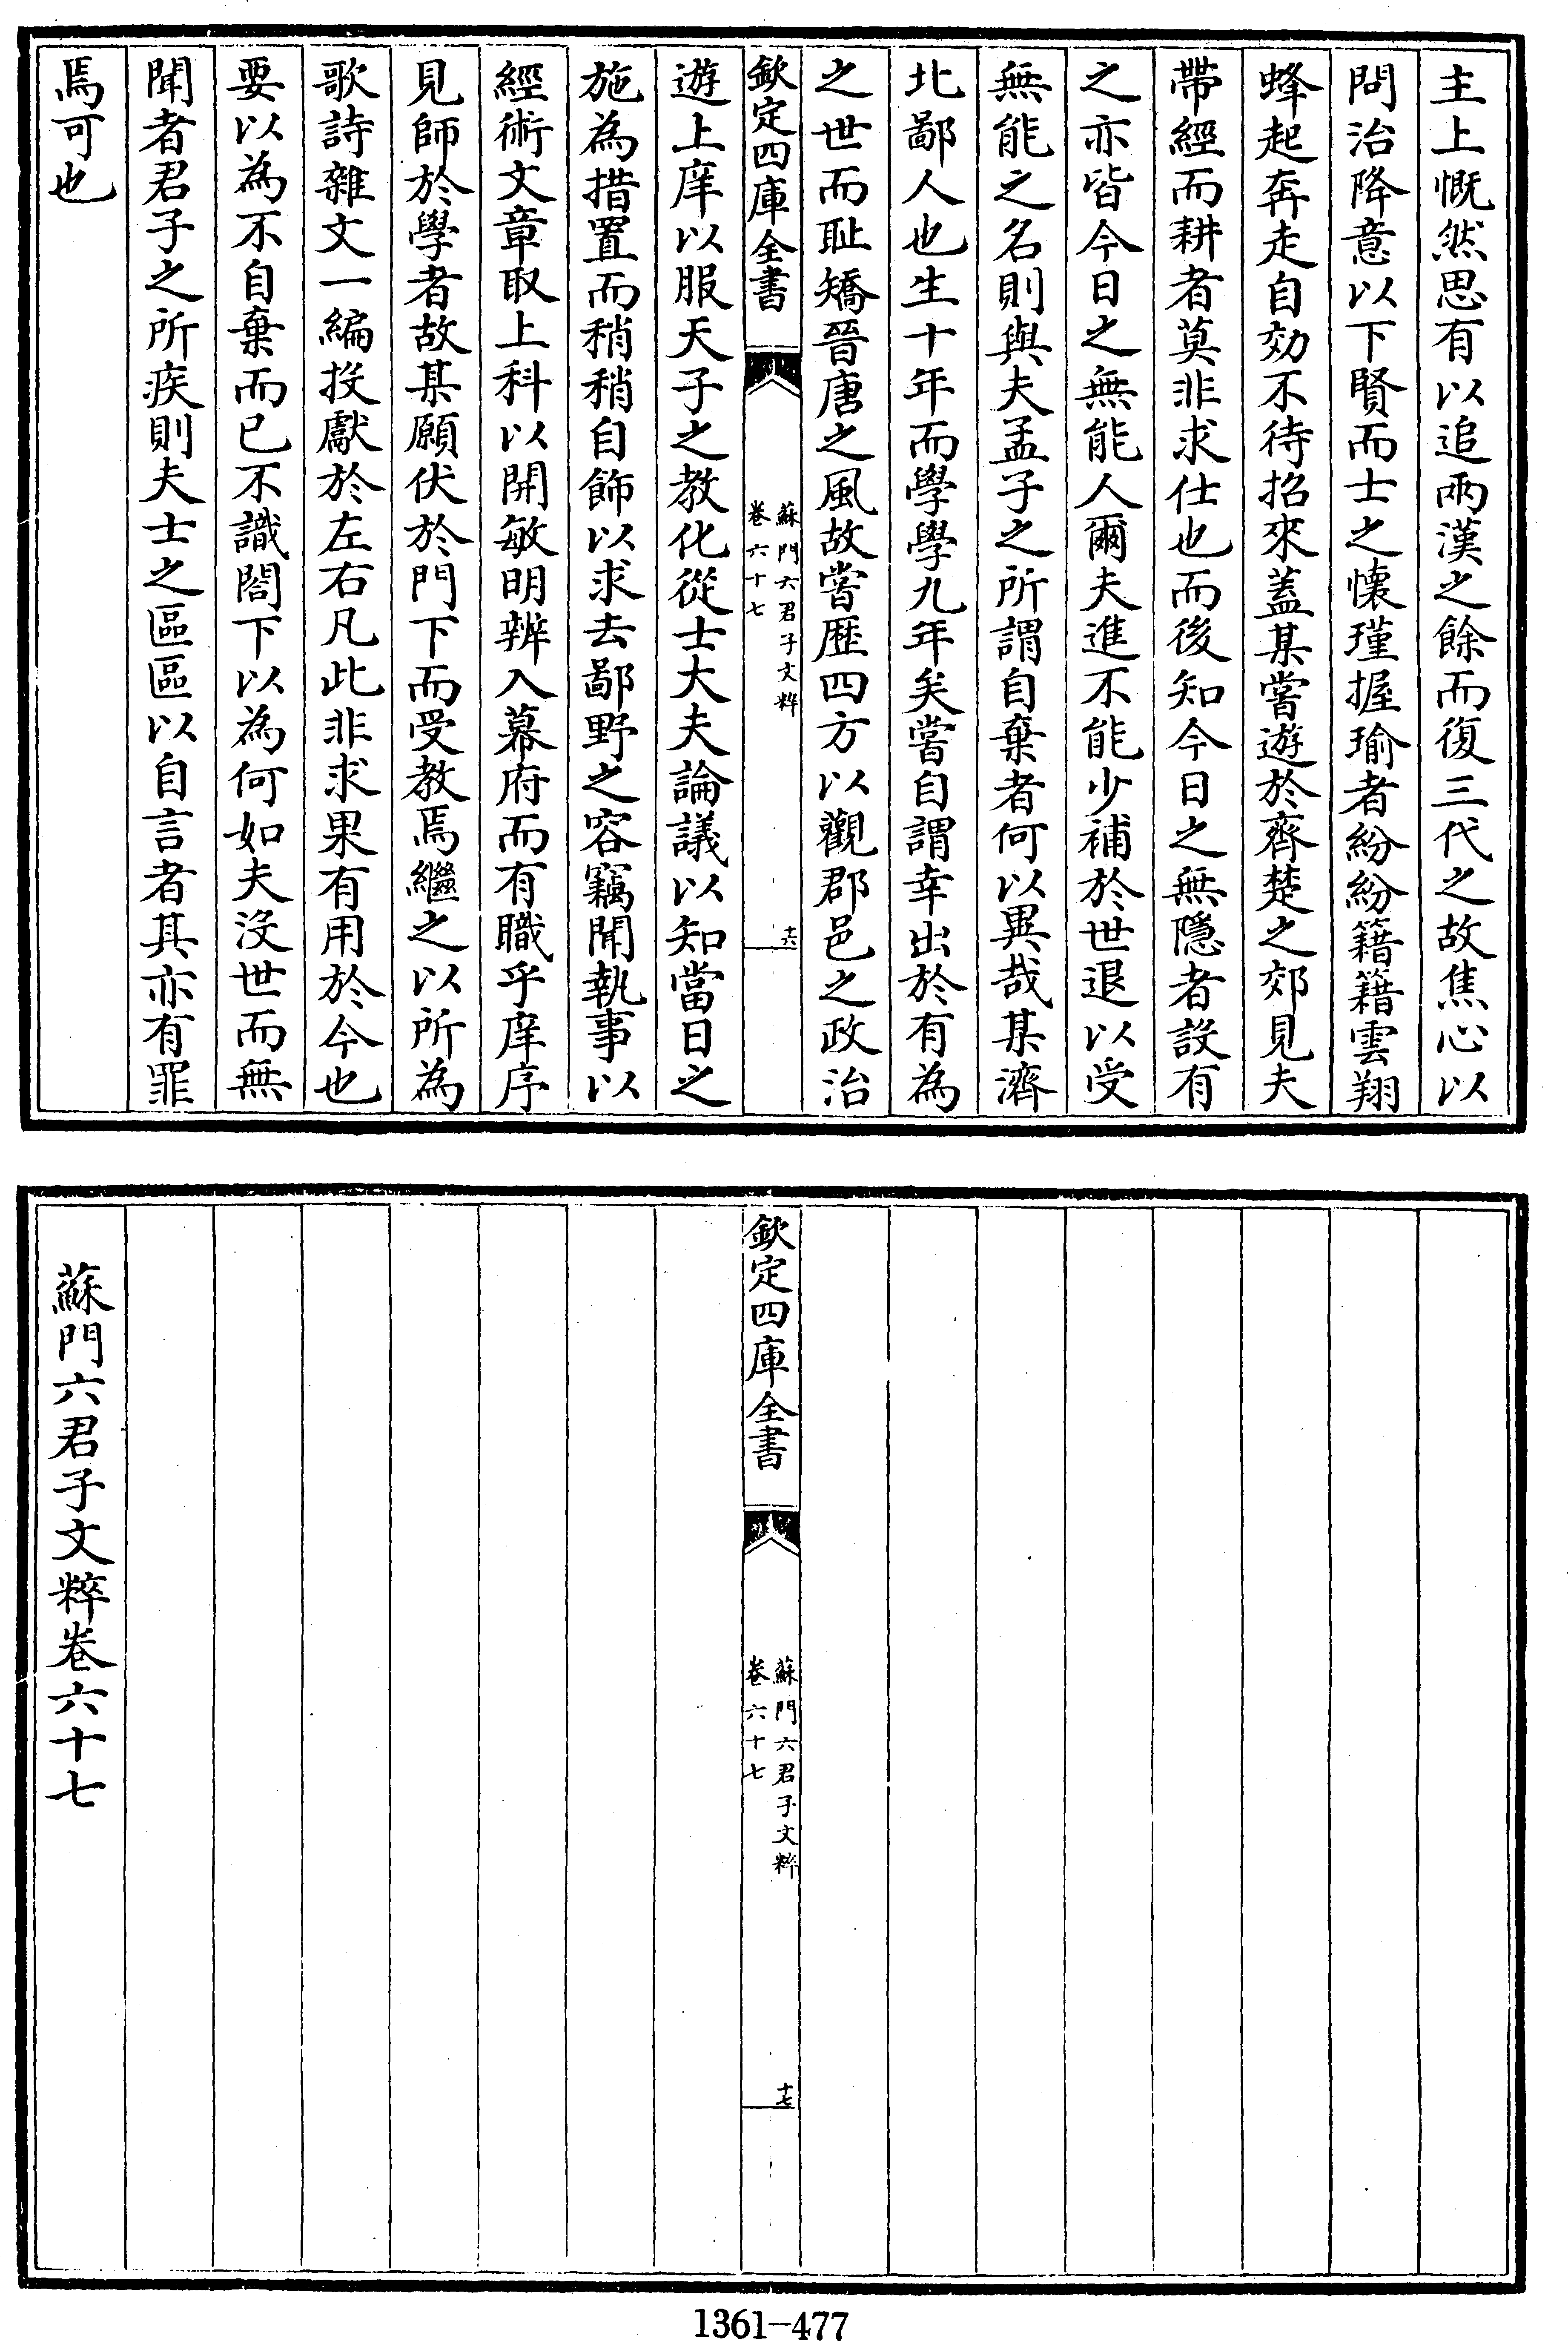 主上慨然思有以追兩漢之餘而復三代之故焦心以
問治降意以下賢而士之懷瑾握瑜者紛紛籍籍雲翔
蜂起奔走自効不待招來蓋某嘗遊於齊楚之郊見夫
帶經而耕者莫非求仕也而後知今日之無隱者設有
之亦皆今日之無能人爾夫進不能少補於世退以受
無能之名則與夫孟子之所謂自棄者何以異哉某濟
北鄙人也生十年而學學九年矣嘗自謂幸出於有為
之世而耻矯晉唐之風故嘗歴四方以觀郡邑之政治
欽定四庫全書
蘇門六君子文粹
卷六十七
十六
遊上庠以服天子之教化從士大夫論議以知當日之
施為措置而稍稍自飾以求去鄙野之容竊聞執事以
經術文章取上科以開敏明辨入幕府而有職乎庠序
見師於學者故某願伏於門下而受教焉繼之以所為
歌詩雜文一編投獻於左右凡此非求果有用於今也
要以為不自棄而已不識閤下以為何如夫沒世而無
聞者君子之所疾則夫士之區區以自言者其亦有罪
焉可也
欽定四庫全書
蘇門六君子文粹
卷六十七
十七
蘇門六君子文粹卷六十七
1361-477